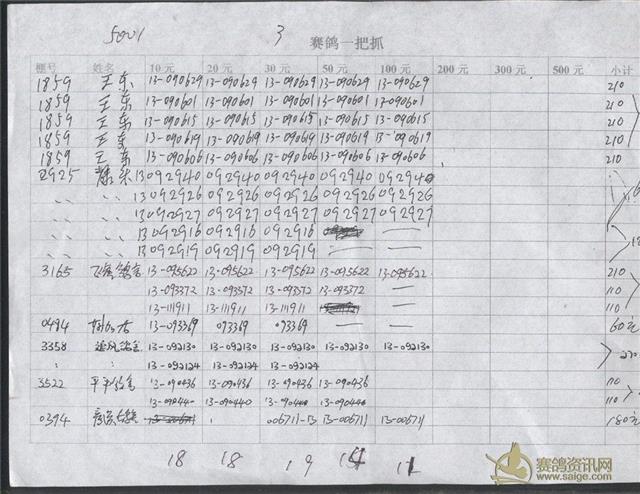 5001 3 赛鸽一把抓
棚号 姓名 10元 20元 30元 50元 100元 200元 300元 500元 小计
1859 王东 13-090629 13-090629 13-090629 13-090629 13-090629 210
1859 王东 13-090601 13-090601 13-090601 13-090601 13-090601 210
1859 王东 13-090615 13-090615 13-090615 13-090615 13-090615 210
1859 王东 13-090619 13-090619 13-090619 13-090619 13-090619 210
1859 王东 13-090606 13-090606 13-090606 13-090606 13-090606 210
2925 13092940 092940 092940 092940 092940
13092926 092926 092926 092926 092926
13092927 092927 092927 092927 092927
13092916 092916 092916
13092919 092919 092919
3165 13-095622 13-095622 13-095622 13-095622 13-095622 210
13-093372 13-093372 13-093372 13-093372 110
13-111911 13-111911 13-111911 110
0494 13-093369 093369 093369 60元
3358 13-092130 13-092130 13-092130 13-092130 13-092130
13-092124 13-092124 13-092124
3522 13-090436 13-090436 13-090436 13-090436 110
13-090440 13-090440 13-090440 13-090440 110
0394 005711-13 13-005711 13-005711 180元
18 18 19
赛鸽资讯网
www.saige.com